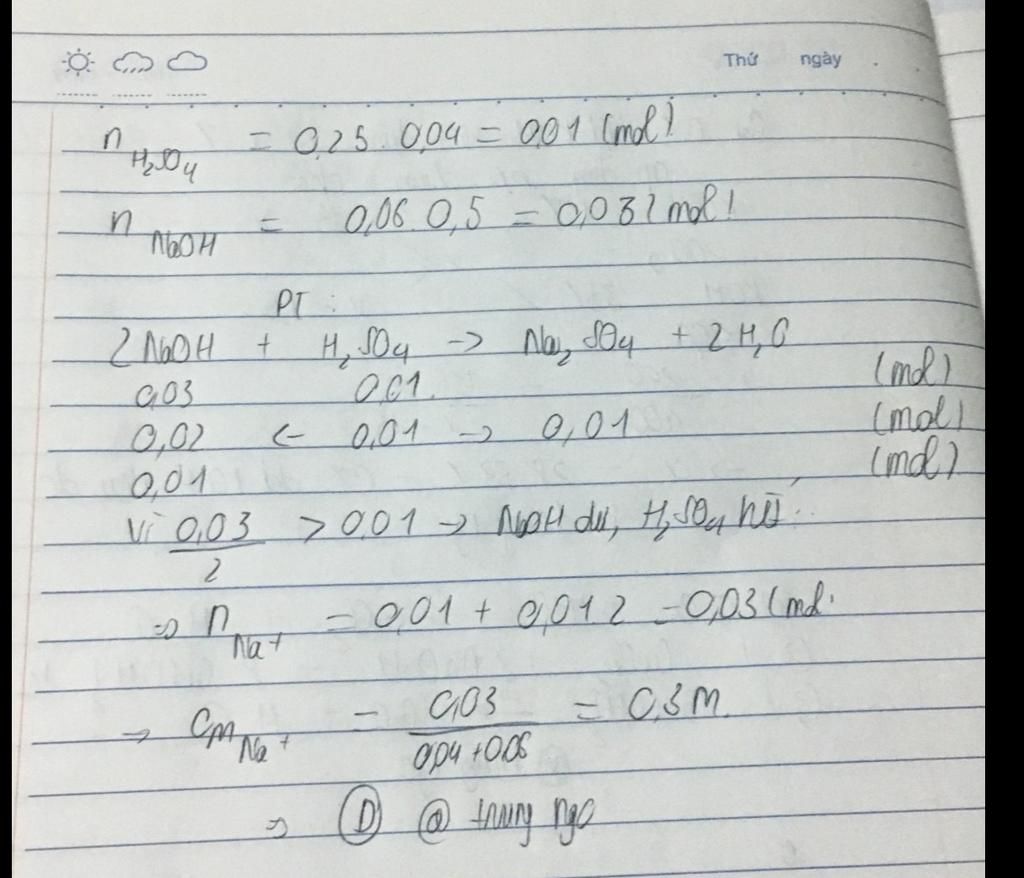 Thứ ngày
n H₂SO₄ = 0,25 . 0,04 = 0,01 (mol)
n NaOH = 0,06 . 0,5 = 0,03 (mol)
PT :
2 NaOH + H₂SO₄ → Na₂SO₄ + 2 H₂O
0,03 0,01 (mol)
0,02 ← 0,01 → 0,01 (mol)
0,01 (mol)
Vì 0,03/2 > 0,01 → NaOH dư, H₂SO₄ hết
⇒ n Na+ = 0,01 + 0,01.2 = 0,03 (mol)
⇒ CM Na+ = 0,03/(0,04+0,06) = 0,3 M.
⇒ D @ trung ngo